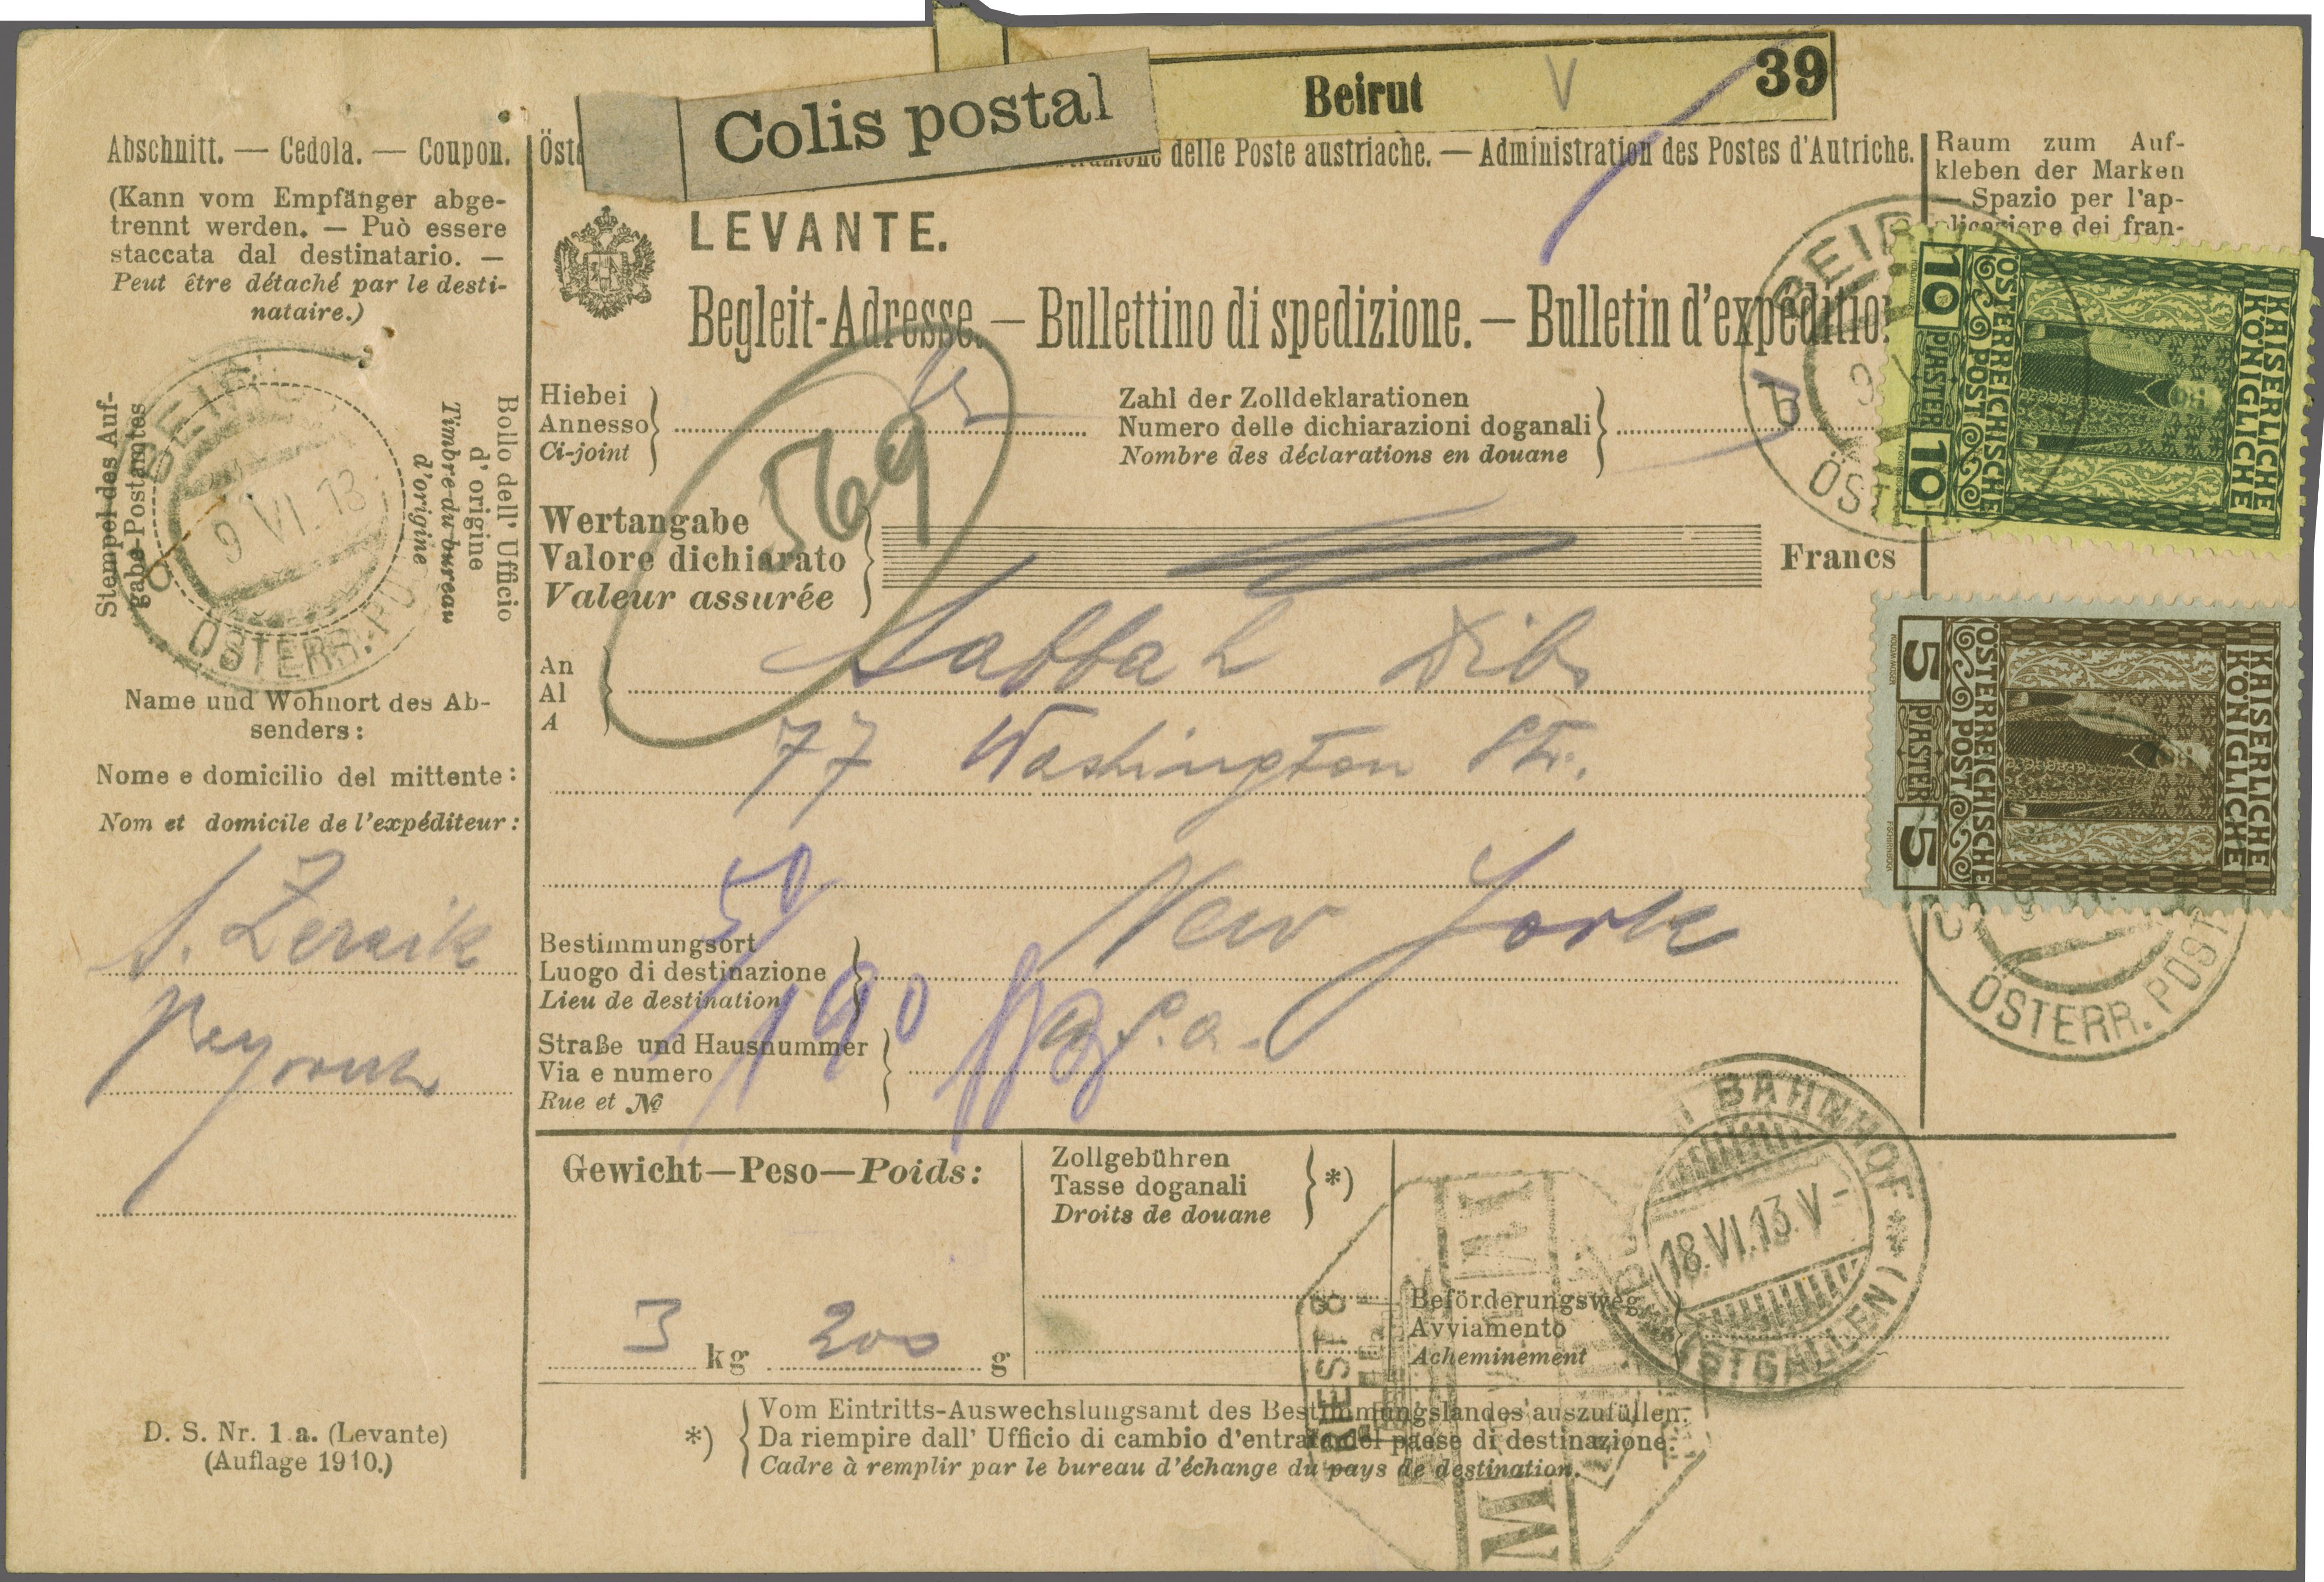 Colis postal
Beirut V 39
Abschnitt. — Cedola. — Coupon.
(Kann vom Empfänger abge-
trennt werden. — Può essere
staccata dal destinatario. —
Peut être détaché par le desti-
nataire.)
Stempel des Auf-
gabe-Postamtes
Bollo dell' Ufficio
d'origine
Timbre du bureau
d'origine
9 VI 13
ÖSTERR. POST
Name und Wohnort des Ab-
senders:
Nome e domicilio del mittente:
Nom et domicile de l'expéditeur:
Beyrouth
D. S. Nr. 1 a. (Levante)
(Auflage 1910.)
delle Poste austriache. — Administration des Postes d'Autriche.
LEVANTE.
Begleit-Adresse. — Bullettino di spedizione. — Bulletin d'expédition
Hiebei
Annesso
Ci-joint
Zahl der Zolldeklarationen
Numero delle dichiarazioni doganali
Nombre des déclarations en douane
569
Wertangabe
Valore dichiarato
Valeur assurée
Francs
An
Al
A
Sabbah Dib
77 Washington Str.
New York
Bestimmungsort
Luogo di destinazione
Lieu de destination
U.S.a.
Straße und Hausnummer
Via e numero
Rue et No
50
190
Gewicht—Peso—Poids:
3 kg 200 g
Zollgebühren
Tasse doganali
Droits de douane
*)
Beförderungsweg
Avviamento
Acheminement
*) Vom Eintritts-Auswechslungsamt des Bestimmungslandes auszufüllen.
Da riempire dall' Ufficio di cambio d'entrata del paese di destinazione.
Cadre à remplir par le bureau d'échange du pays de destination.
Raum zum Auf-
kleben der Marken
— Spazio per l'ap-
plicazione dei fran-
KAISERLICHE
KÖNIGLICHE
ÖSTERREICHISCHE
POST
10 PIASTER 10
KAISERLICHE
KÖNIGLICHE
ÖSTERREICHISCHE
POST
5 PIASTER 5
ÖSTERR. POST
BAHNHOF
18.VI.13.V-
(ST GALLEN)
TRIEST 8